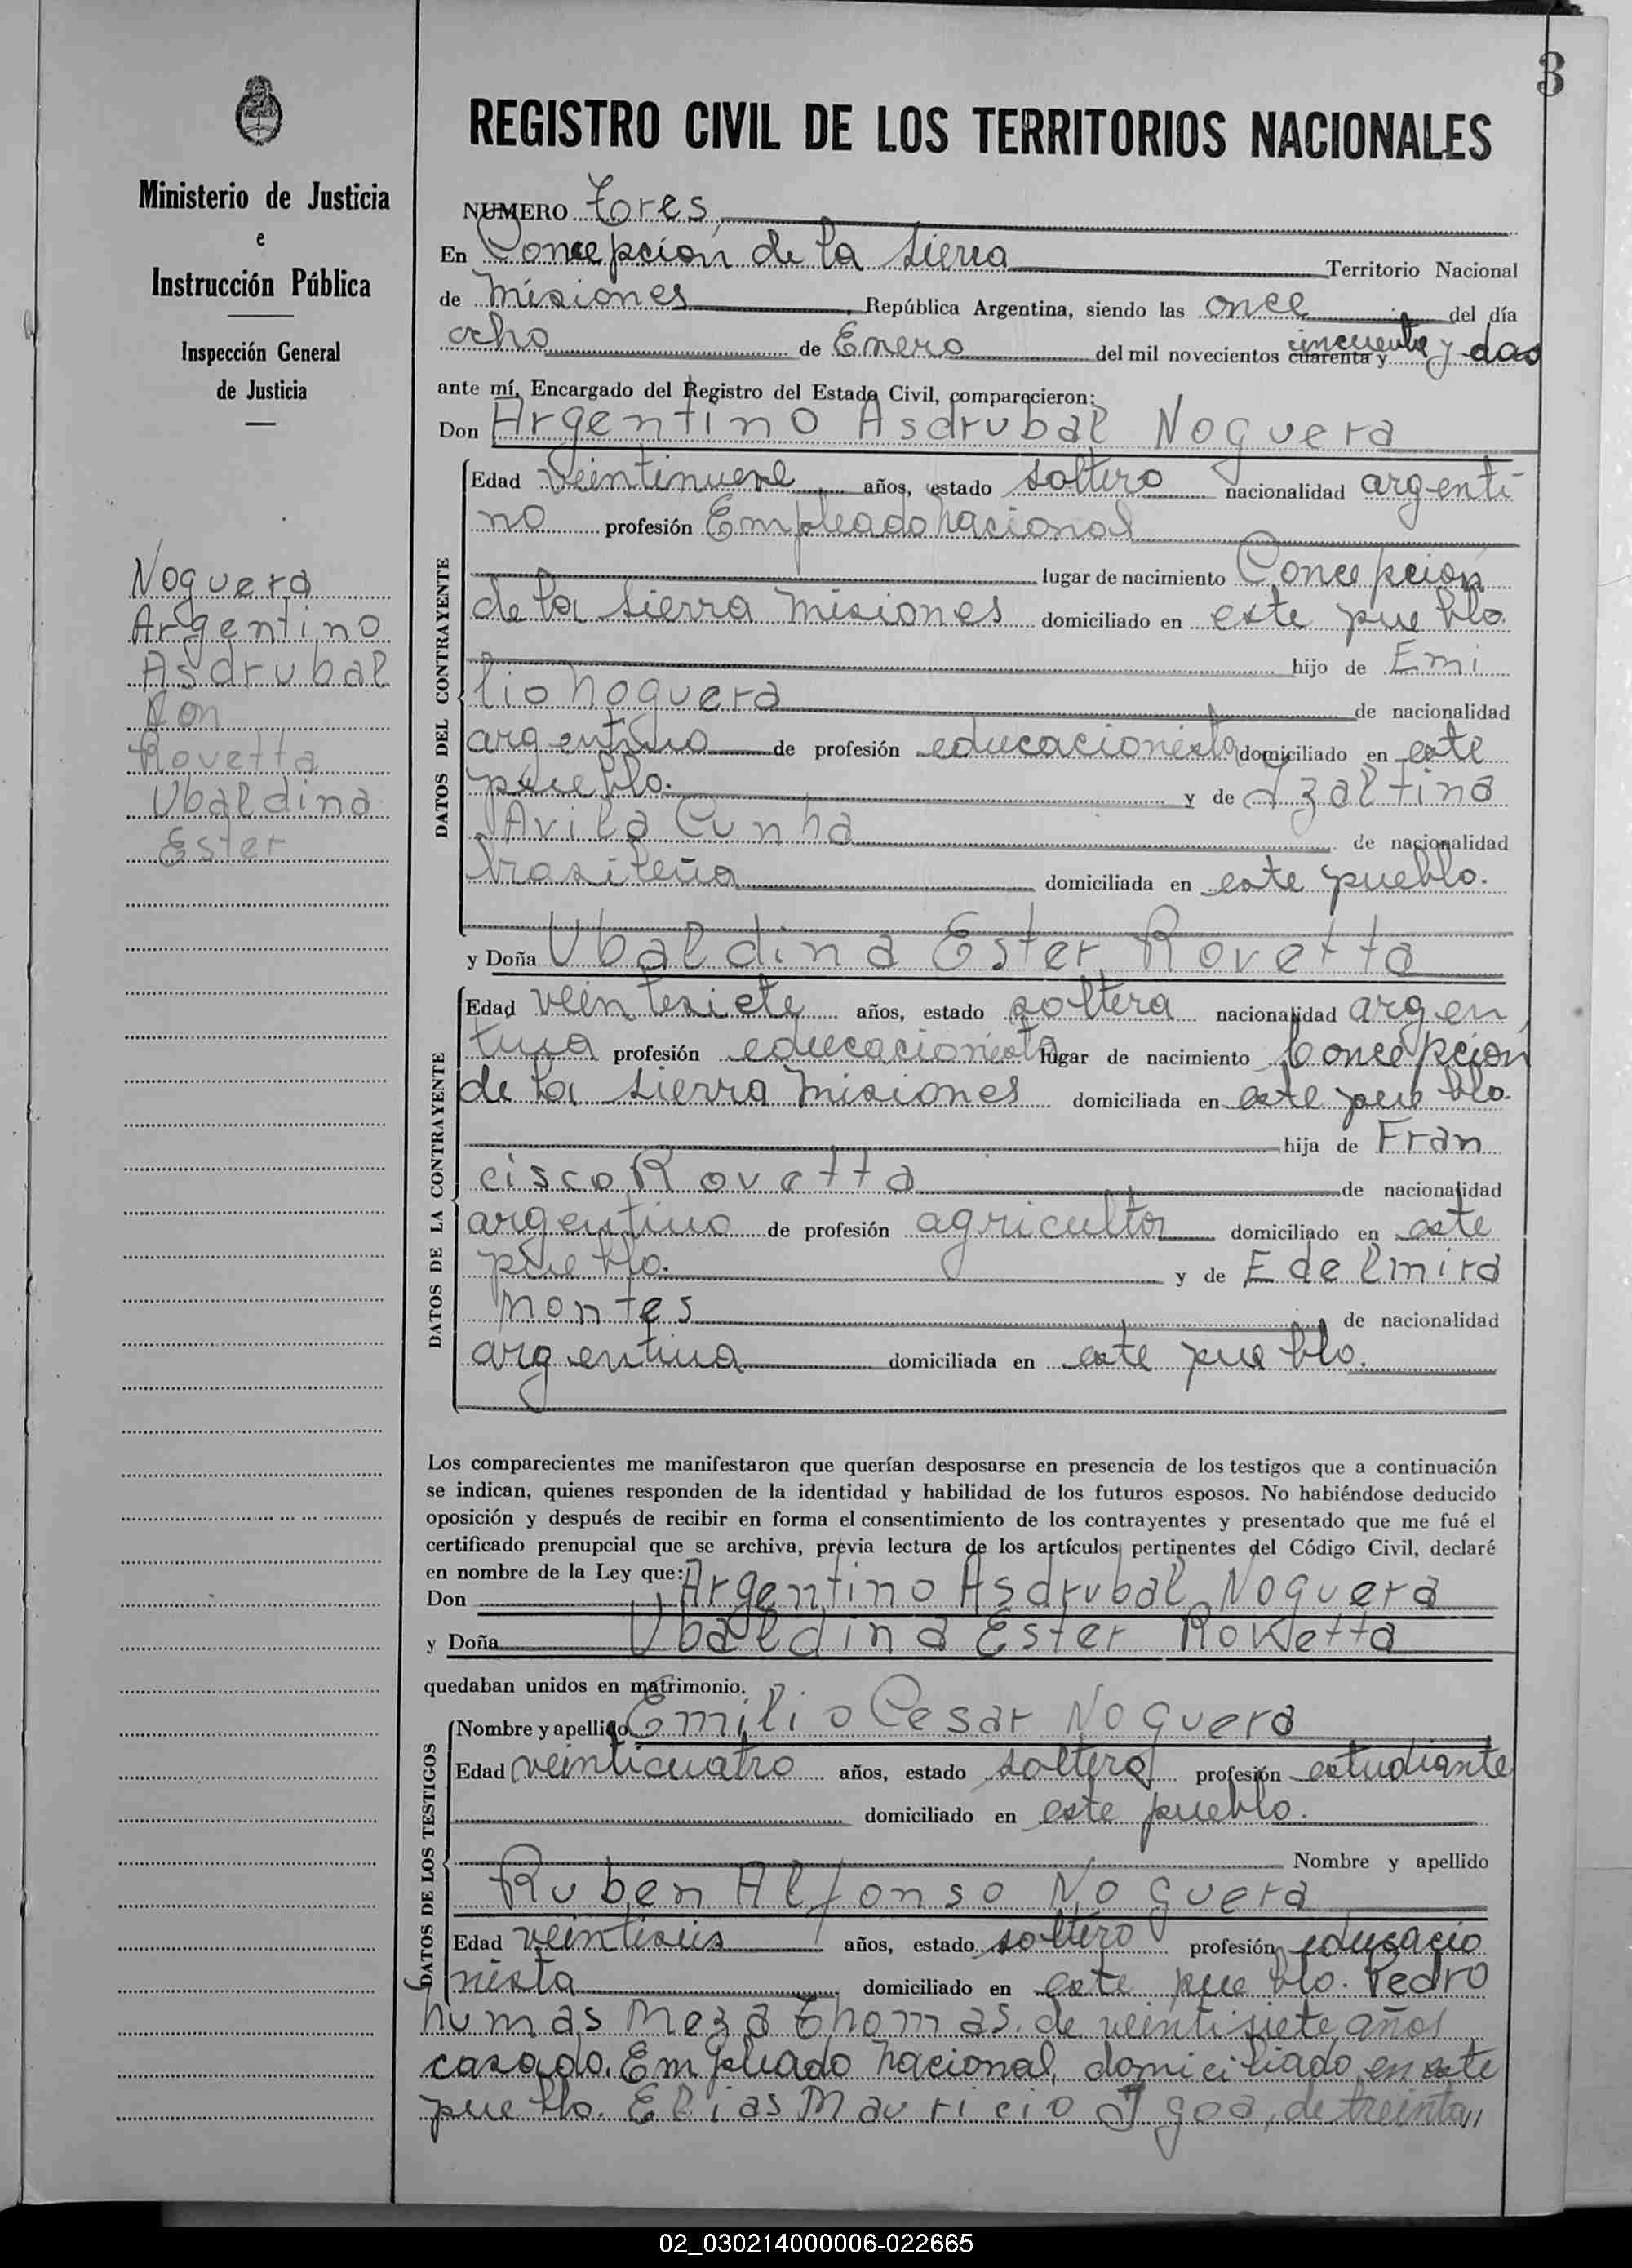 3
REGISTRO CIVIL DE LOS TERRITORIOS NACIONALES
Ministerio de Justicia
e
Instrucción Pública
Inspección General
de Justicia
Noguera
Argentino
Asdrubal
Con
Rovetta
Ubaldina
Ester
NUMERO Tres
En Concepción de la Sierra Territorio Nacional
de Misiones, República Argentina, siendo las once del día
ocho de Enero del mil novecientos cuarenta y cincuenta y dos
ante mí, Encargado del Registro del Estado Civil, comparecieron:
Don Argentino Asdrubal Noguera
DATOS DEL CONTRAYENTE
Edad veintinueve años, estado soltero nacionalidad argenti
no profesión Empleado Nacional
lugar de nacimiento Concepción
de la Sierra Misiones domiciliado en este pueblo.
hijo de Emi
lio Noguera de nacionalidad
argentino de profesión educacionista domiciliado en este
pueblo. y de Izaltina
Avila Cunha de nacionalidad
brasileña domiciliada en este pueblo.
y Doña Ubaldina Ester Rovetta
DATOS DE LA CONTRAYENTE
Edad veintisiete años, estado soltera nacionalidad argen
tina profesión educacionista lugar de nacimiento Concepción
de la Sierra Misiones domiciliada en este pueblo.
hija de Fran
cisco Rovetta de nacionalidad
argentino de profesión agricultor domiciliado en este
pueblo. y de Edelmira
Montes de nacionalidad
argentina domiciliada en este pueblo.
Los comparecientes me manifestaron que querían desposarse en presencia de los testigos que a continuación
se indican, quienes responden de la identidad y habilidad de los futuros esposos. No habiéndose deducido
oposición y después de recibir en forma el consentimiento de los contrayentes y presentado que me fué el
certificado prenupcial que se archiva, previa lectura de los artículos pertinentes del Código Civil, declaré
en nombre de la Ley que:
Don Argentino Asdrubal Noguera
y Doña Ubaldina Ester Rovetta
quedaban unidos en matrimonio.
DATOS DE LOS TESTIGOS
Nombre y apellido Emilio Cesar Noguera
Edad veinticuatro años, estado soltero profesión estudiante
domiciliado en este pueblo.
Nombre y apellido
Ruben Alfonso Noguera
Edad veintiseis años, estado soltero profesión educacio
nista domiciliado en este pueblo. Pedro
Numas Meza Thomas, de veintisiete años
casado, Empleado Nacional, domiciliado en este
pueblo. Elias Mauricio Igoa, de treinta
02_030214000006-022665